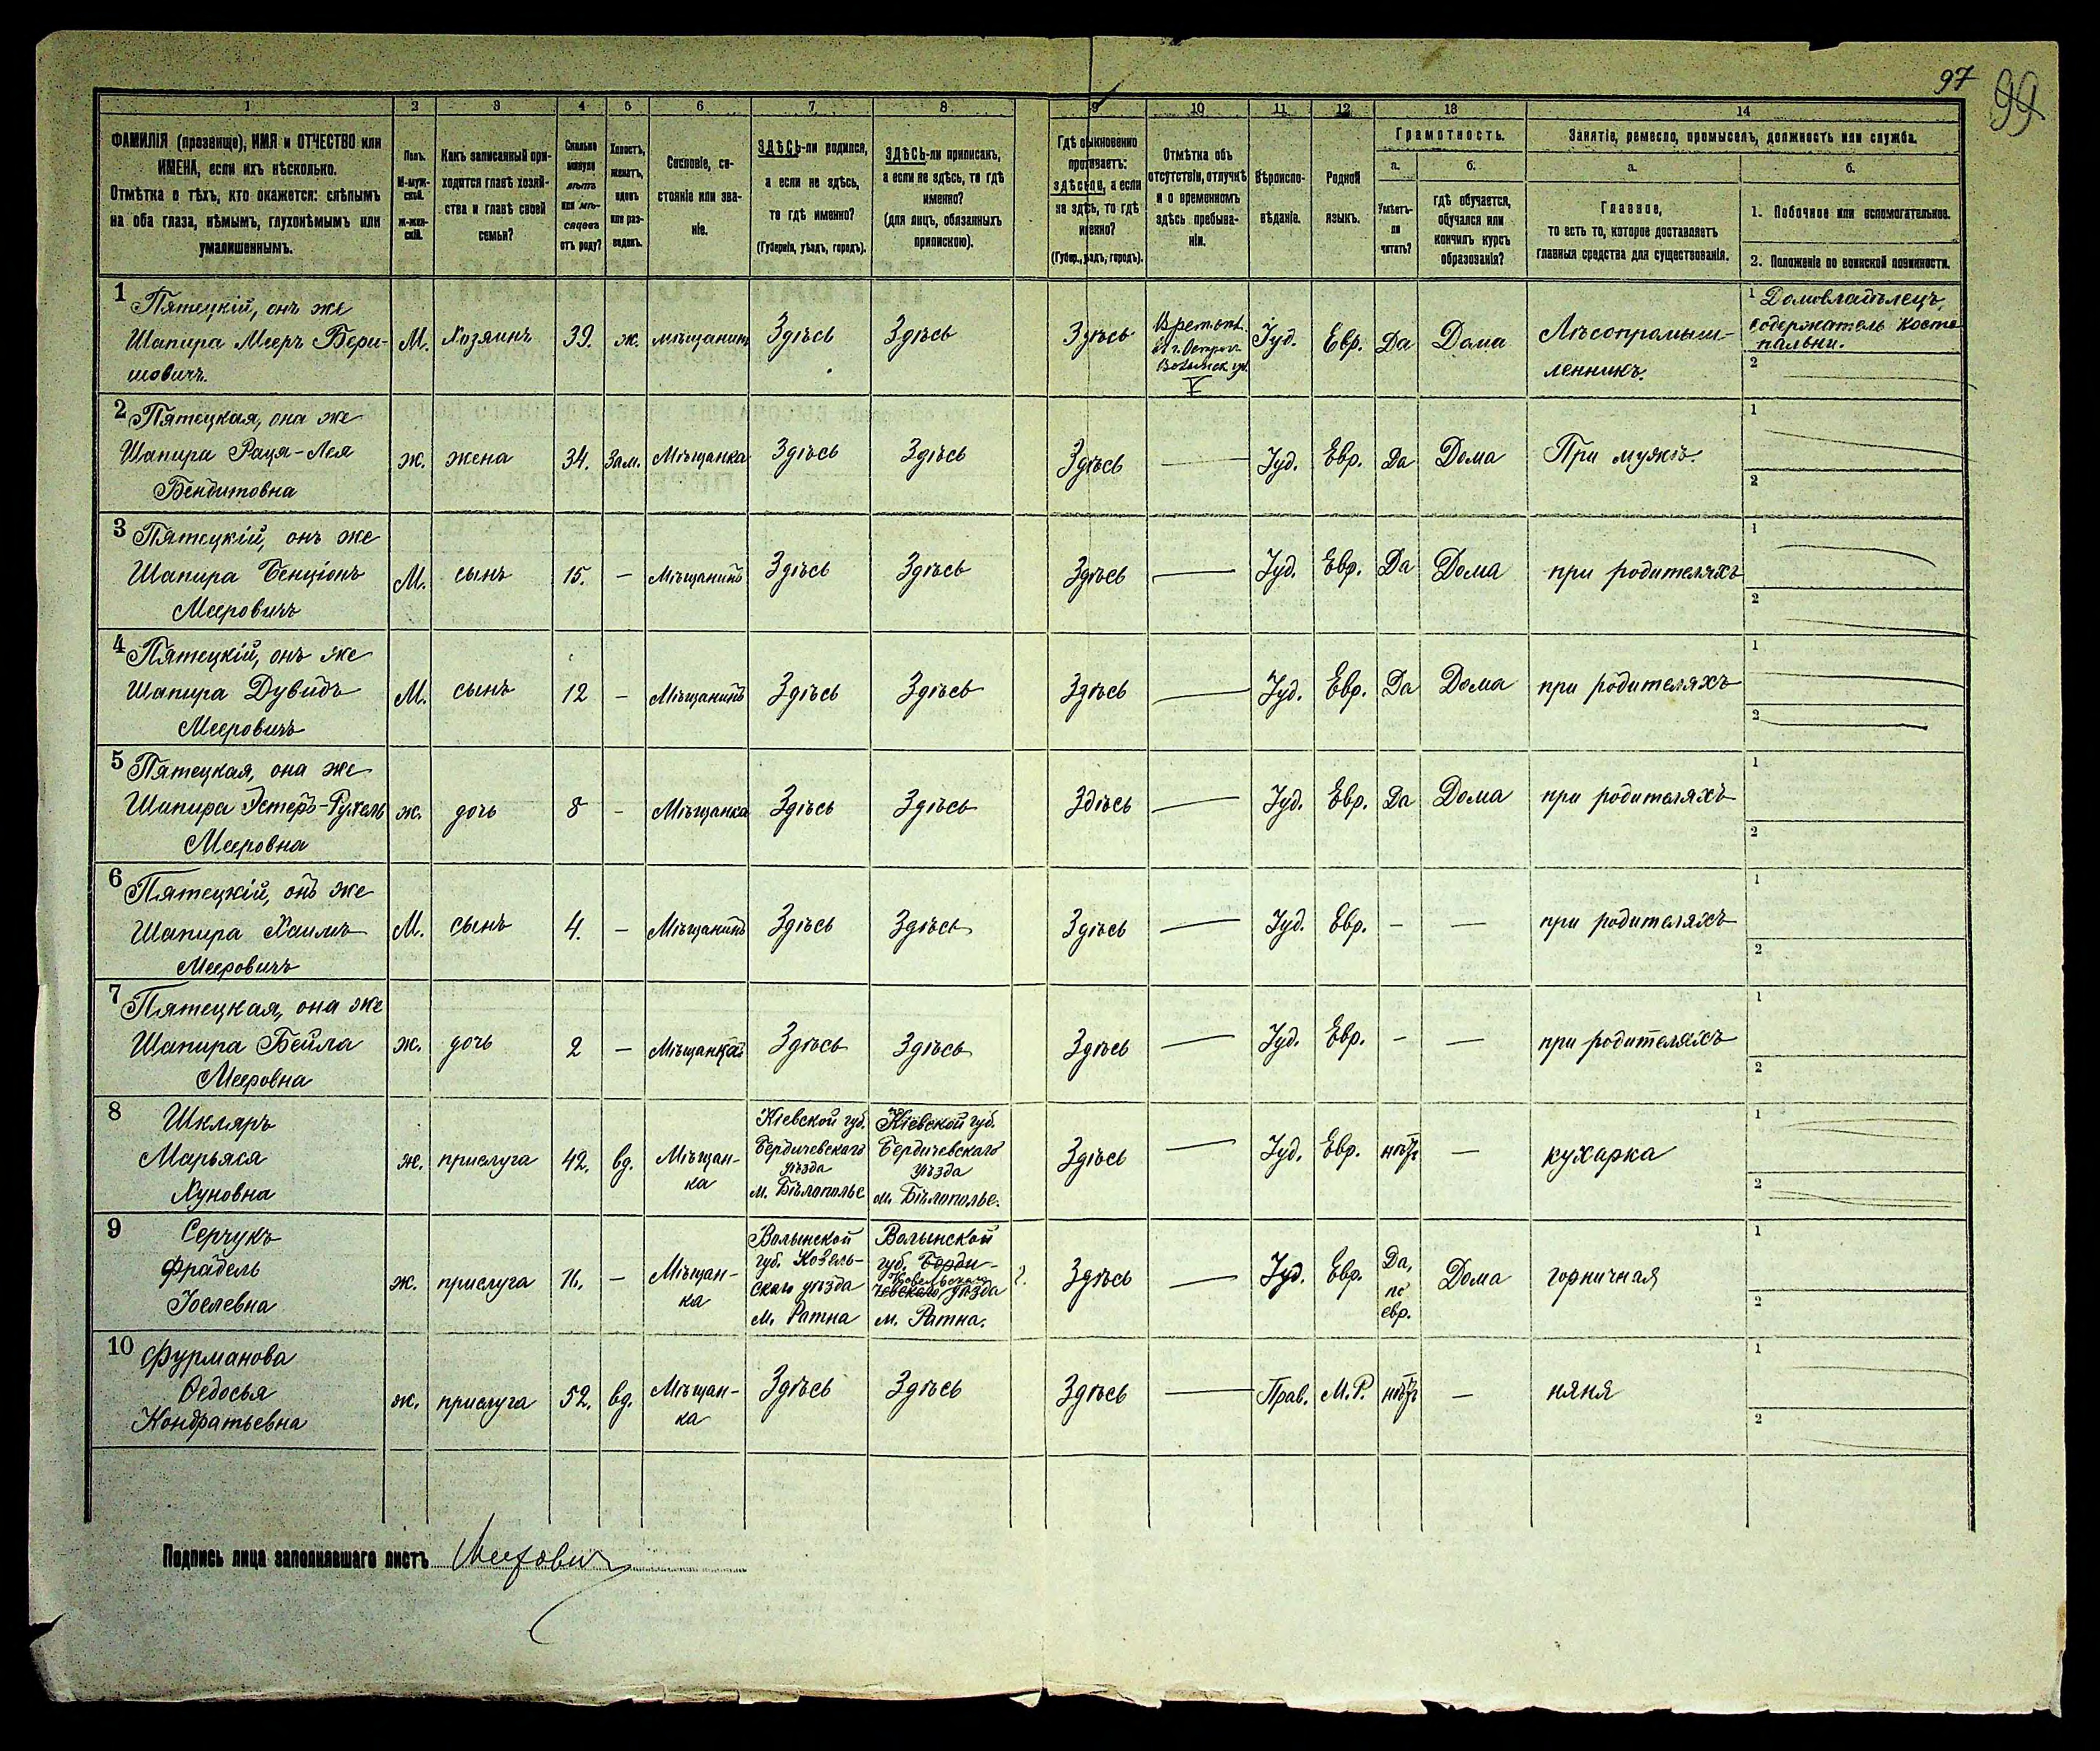 97
99
1 2 3 4 5 6 7 8 9 10 11 12 13 14
ФАМИЛІЯ (прозвище), ИМЯ и ОТЧЕСТВО или
ИМЕНА, если ихъ нѣсколько.
Отмѣтка о тѣхъ, кто окажется: слѣпымъ
на оба глаза, нѣмымъ, глухонѣмымъ или
умалишеннымъ.
Полъ.
М-муж-
ской.
Ж-жен-
скій.
Какъ записанный при-
ходится главѣ хозяй-
ства и главѣ своей
семьи?
Сколько
минуло
лѣтъ
или мѣ-
сяцевъ
отъ роду?
Холостъ,
женатъ,
вдовъ
или раз-
веденъ.
Сословіе, со-
стояніе или зва-
ніе.
ЗДѢСЬ-ли родился,
а если не здѣсь,
то гдѣ именно?
(Губернія, уѣздъ, городъ).
ЗДѢСЬ-ли приписанъ,
а если не здѣсь, то гдѣ
именно?
(для лицъ, обязанныхъ
припискою).
Гдѣ обыкновенно
проживаетъ:
здѣсь-ли, а если
не здѣсь, то гдѣ
именно?
(Губер., уѣздъ, городъ).
Отмѣтка объ
отсутствіи, отлучкѣ
и о временномъ
здѣсь пребыва-
ніи.
Вѣроиспо-
вѣданіе.
Родной
языкъ.
Грамотность.
а. б.
Умѣетъ-
ли
читать?
гдѣ обучается,
обучался или
кончилъ курсъ
образованія?
Занятіе, ремесло, промыселъ, должность или служба.
а. б.
Главное,
то есть то, которое доставляетъ
главныя средства для существованія.
1. Побочное или вспомогательное.
2. Положеніе по воинской повинности.
1 Пятецкій, онъ же
Шапира Мееръ Бери-
шовичъ.
М. Хозяинъ 39. ж. мѣщанинъ Здѣсь Здѣсь Здѣсь
Времен.
V
Іуд. Евр. Да Дома
Лѣсопромыш-
ленникъ.
1 Домовладѣлецъ,
содержатель косто
пальни.
2
2 Пятецкая, она же
Шапира Рася-Лея
Бендитовна
ж. жена 34. Зам. Мѣщанка Здѣсь Здѣсь Здѣсь — Іуд. Евр. Да Дома При мужѣ.
1
2
3 Пятецкій, онъ же
Шапира Бенціонъ
Мееровичъ
М. сынъ 15. — Мѣщанинъ Здѣсь Здѣсь Здѣсь — Іуд. Евр. Да Дома при родителяхъ
1
2
4 Пятецкій, онъ же
Шапира Дувидъ
Мееровичъ
М. сынъ 12 — Мѣщанинъ Здѣсь Здѣсь Здѣсь — Іуд. Евр. Да Дома при родителяхъ
1
2
5 Пятецкая, она же
Шапира Эстеръ-Рухель
Мееровна
ж. дочь 8 — Мѣщанка Здѣсь Здѣсь Здѣсь — Іуд. Евр. Да Дома при родителяхъ
1
2
6 Пятецкій, онъ же
Шапира Хаимъ
Мееровичъ
М. сынъ 4. — Мѣщанинъ Здѣсь Здѣсь Здѣсь — Іуд. Евр. — — при родителяхъ
1
2
7 Пятецкая, она же
Шапира Бейла
Мееровна
ж. дочь 2 — Мѣщанка Здѣсь Здѣсь Здѣсь — Іуд. Евр. — — при родителяхъ
1
2
8 Шкляръ
Марьяся
Хуновна
ж. прислуга 42. вд.
Мѣщан-
ка
Кіевской губ.
Бердичевскаго
уѣзда
м. Бѣлополье
Кіевской губ.
Бердичевскаго
уѣзда
м. Бѣлополье.
Здѣсь — Іуд. Евр. нѣтъ — кухарка
1
2
9 Серчукъ
Фрадель
Іоелевна
ж. прислуга 16. —
Мѣщан-
ка
Волынской
губ. Ковель-
скаго уѣзда
м. Ратна
Волынской
губ. Берди-
Ковельскаго
чевскаго уѣзда
м. Ратна.
?. Здѣсь — Іуд. Евр.
Да,
по
евр.
Дома горничная
1
2
10 Фурманова
Ѳедосья
Кондратьевна
ж. прислуга 52. вд.
Мѣщан-
ка
Здѣсь Здѣсь Здѣсь — Прав. М.Р. нѣтъ — няня
1
2
Подпись лица заполнявшаго листъ